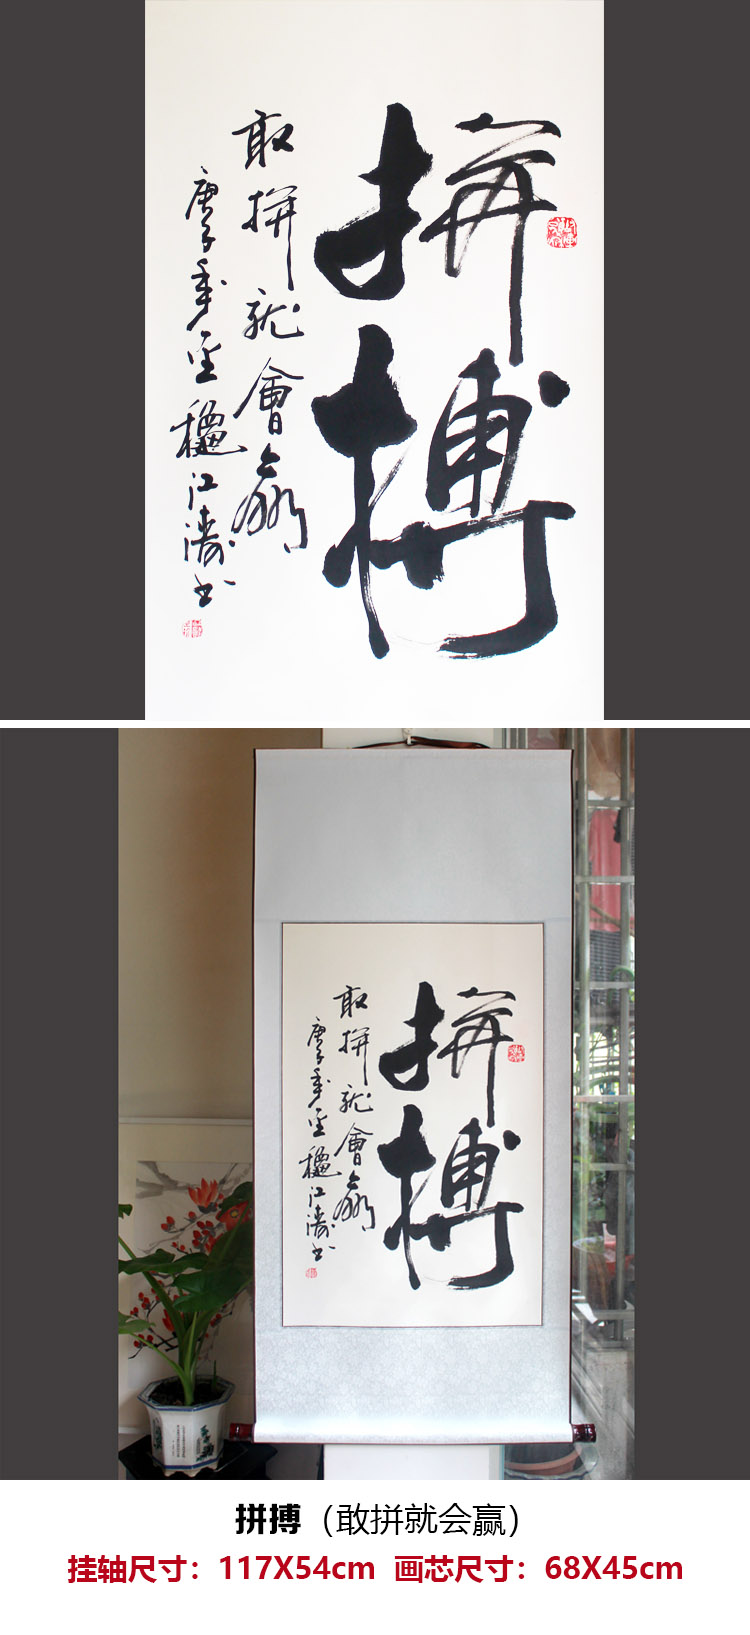 拼搏
敢拼就會贏
庚子年至穗江濤书
拼搏
敢拼就會贏
庚子年至穗江濤书
拼搏（敢拼就会赢）
挂轴尺寸：117X54cm 画芯尺寸：68X45cm